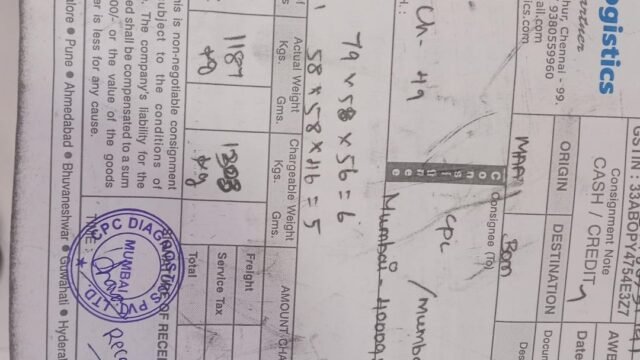 ogistics
artner
hur, Chennai - 99.
9380559960
ail.com
ics.com
GSTIN : 33ABOPY4754E3Z7
Consignment Note
CASH / CREDIT
AWB
Date
ORIGIN
DESTINATION
Docu
Des
MAA
Bom
Consignee (To)
Consignee
CPC
/ Mumb
Mumbai - 400093
Ch - 49
79 x 58 x 56 = 6
58 x 58 x 46 = 5
Actual Weight
Kgs.
Gms.
1187
kg
Chargeable Weight
Kgs.
Gms.
1303
kg
AMOUNT CHA
Freight
Service Tax
Total
his is non-negotiable consignment
subject to the conditions of
. The company's liability for the
ed shall be compensated to a sum
000/- or the value of the goods
er is less for any cause.
TIME :
OF RECEI
CPC DIAGNOSTICS PVT. LTD.
MUMBAI
Rece
alore ● Pune ● Ahmedabad ● Bhuvaneshwar ● Guwahati ● Hyderal